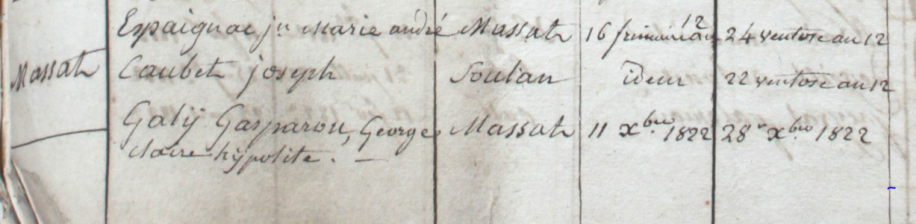 Espaignac jn Marie andré Massat 16 frimaire an 12 24 ventose an 12
Massat Caubet joseph Soulan Idem 22 ventose an 12
Galÿ Gasparou, George Massat 11 Xbre 1822 28 Xbre 1822
Marie hÿpolite. —